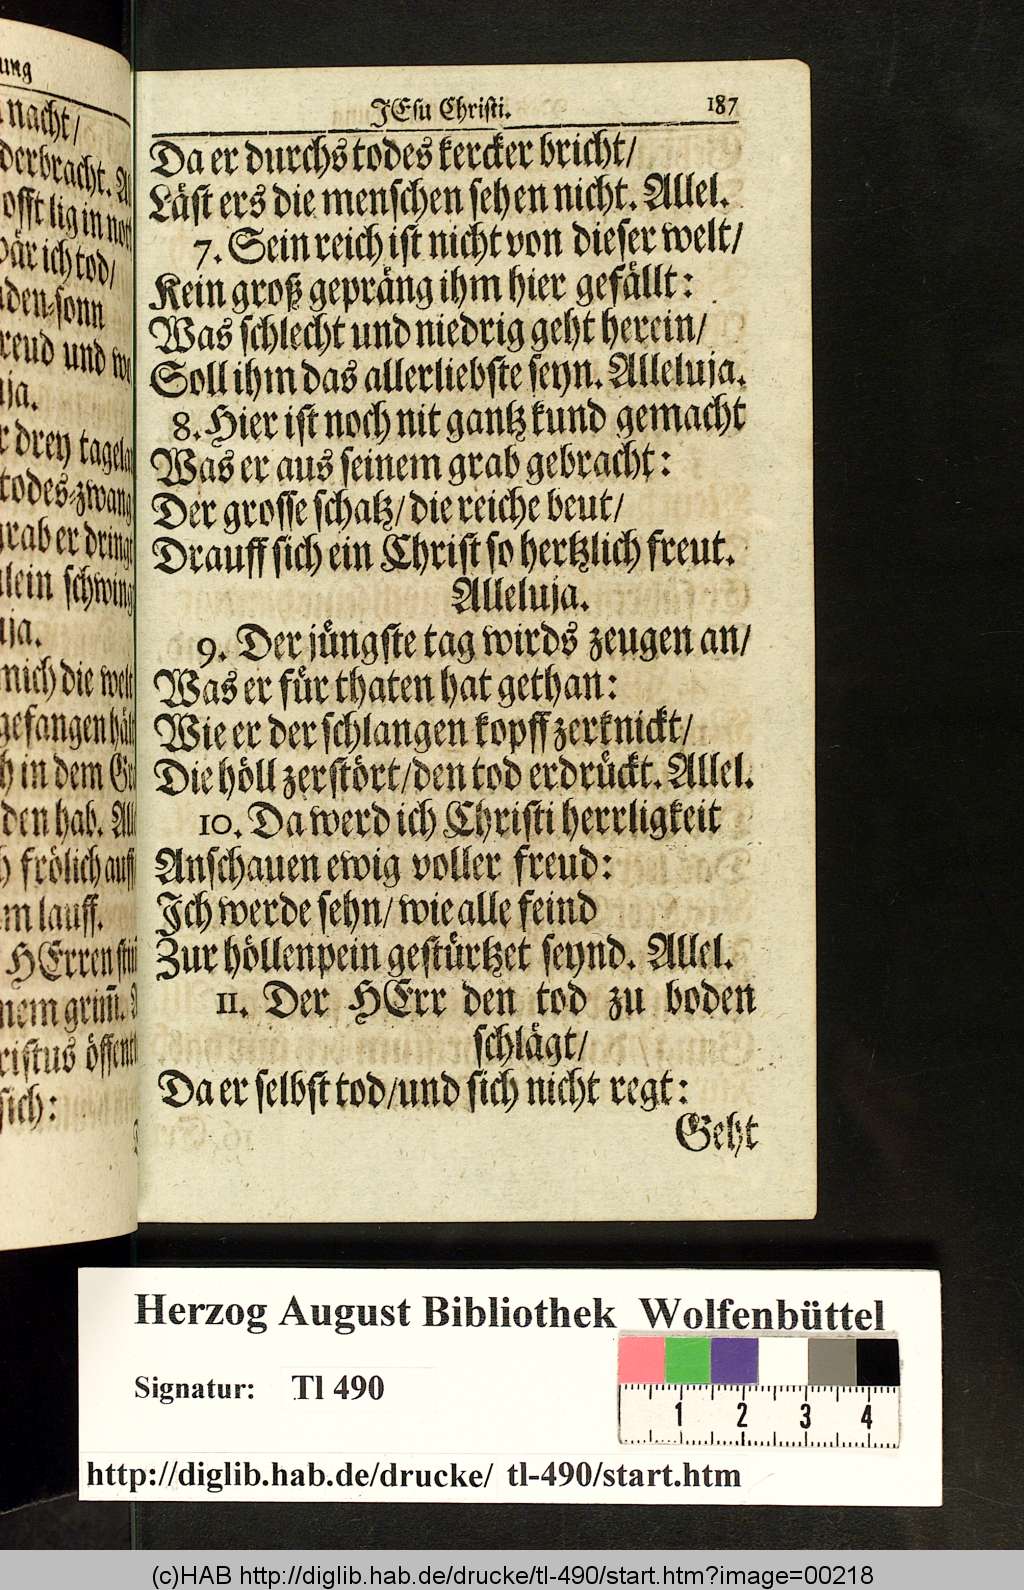 ung
nacht/
derbracht.
offt lig in not
wär ich tod/
den-sonn
reud und we
ja.
drey tagela
todes-zwang
grab er dring
lein schwing
ja.
mich die welt
gefangen hält
in dem Gr
den hab. All
frölich auff
m lauff.
HErren stim
nem grim̃.
ristus öffent
sich:
JEsu Christi. 187
Da er durchs todes kercker bricht/
Läst ers die menschen sehen nicht. Allel.
7. Sein reich ist nicht von dieser welt/
Kein groß gepräng ihm hier gefällt:
Was schlecht und niedrig geht herein/
Soll ihm das allerliebste seyn. Alleluja.
8. Hier ist noch nit gantz kund gemacht
Was er aus seinem grab gebracht:
Der grosse schatz/ die reiche beut/
Drauff sich ein Christ so hertzlich freut.
Alleluja.
9. Der jüngste tag wirds zeugen an/
Was er für thaten hat gethan:
Wie er der schlangen kopff zerknickt/
Die höll zerstört/ den tod erdrückt. Allel.
10. Da werd ich Christi herrligkeit
Anschauen ewig voller freud:
Ich werde sehn/ wie alle feind
Zur höllenpein gestürtzet seynd. Allel.
11. Der HErr den tod zu boden
schlägt/
Da er selbst tod/ und sich nicht regt:
Geht
Herzog August Bibliothek Wolfenbüttel
Signatur: Tl 490
1 2 3 4
http://diglib.hab.de/drucke/ tl-490/start.htm
(c)HAB http://diglib.hab.de/drucke/tl-490/start.htm?image=00218